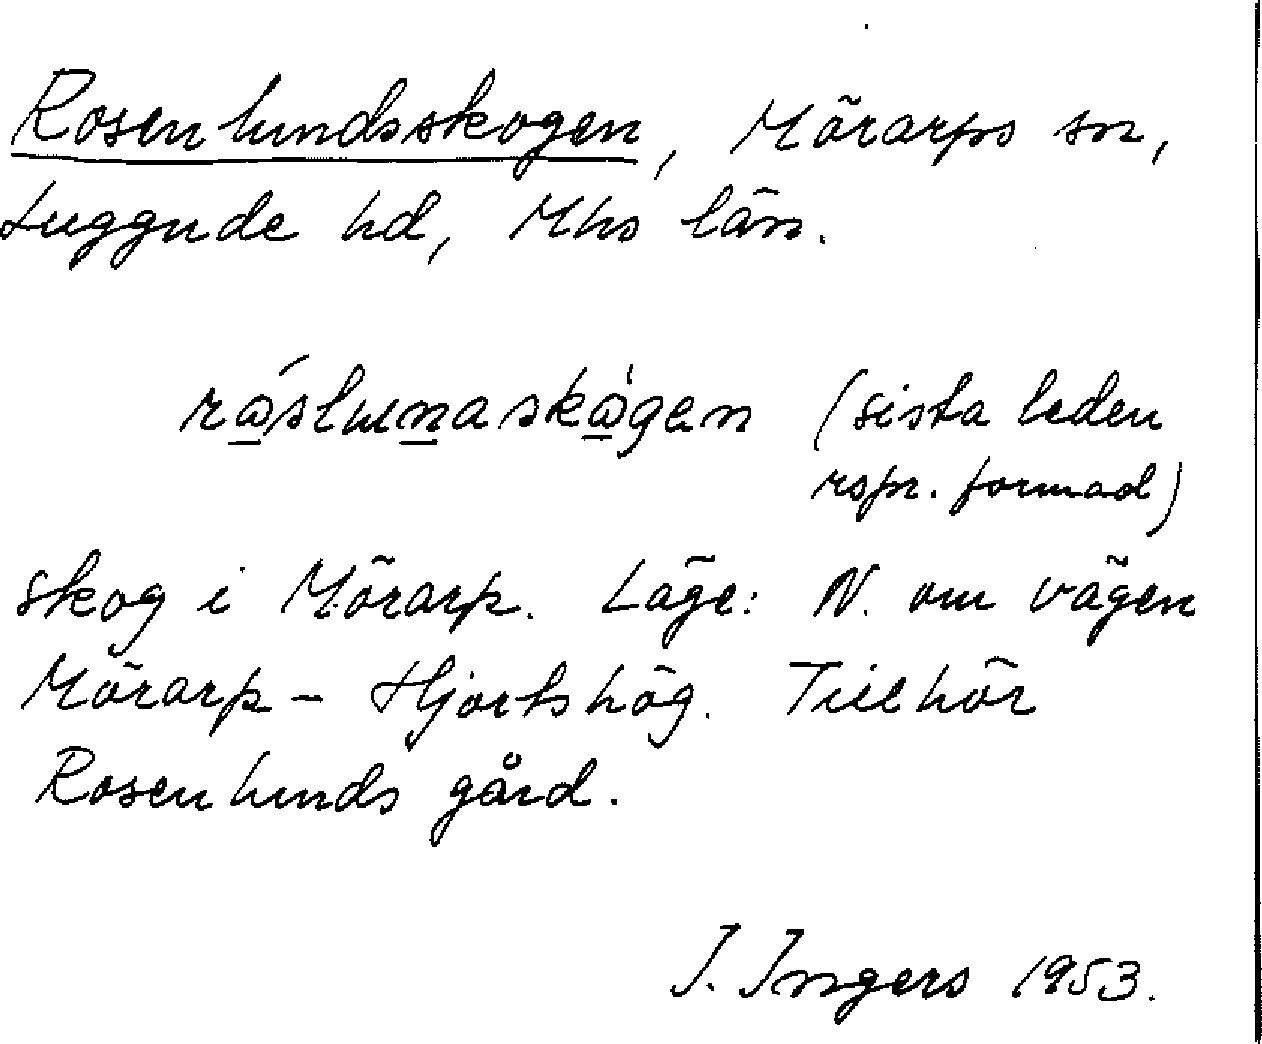 Rosenlundsskogen, Mörarps sn,
Luggude hd, Mhs län.
råslunaskågen (sista leden
rspr. formad)
skog i Mörarp. Läge: N. om vägen
Mörarp – Hjortshög. Tillhör
Rosenlunds gård.
I. Ingers 1953.